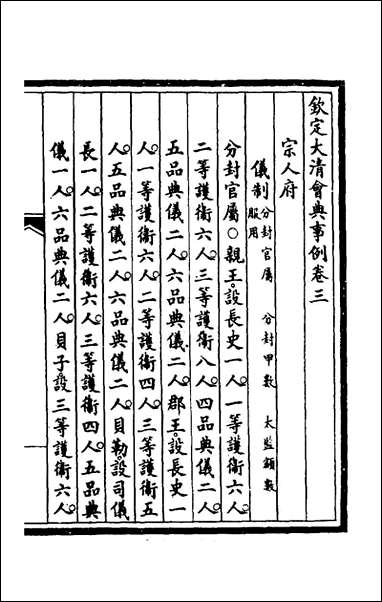 欽定大清會典事例卷三
宗人府
儀制 分封官屬 分封甲數 太監額數
服用
分封官屬○親王。設長史一人。一等護衛六人。
二等護衛六人。三等護衛八人。四品典儀二人。
五品典儀二人。六品典儀二人。郡王。設長史一
人。一等護衛六人。二等護衛四人。三等護衛五
人。五品典儀二人。六品典儀二人。貝勒。設司儀
長一人。二等護衛六人。三等護衛四人。五品典
儀一人。六品典儀二人。貝子。設三等護衛六人。